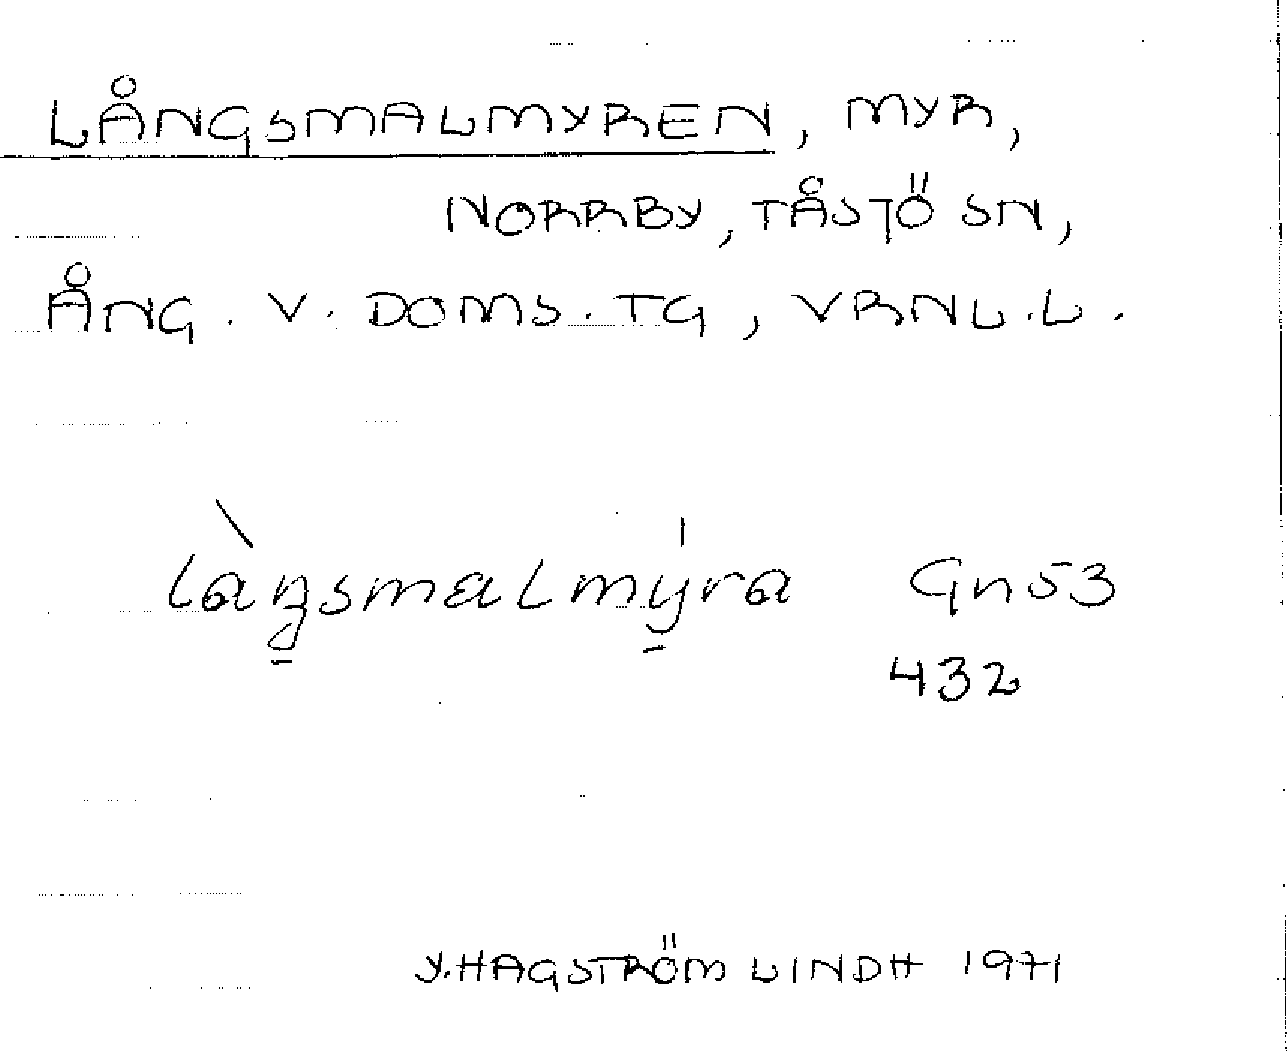 LÅNGSMALMYREN, MYR,
NORRBY, TÅSJÖ SN,
ÅNG. V. DOMS.TG, VRNL.L.
làŋsmalmýra Gn53
432
Y.HAGSTRÖM LINDH 1971